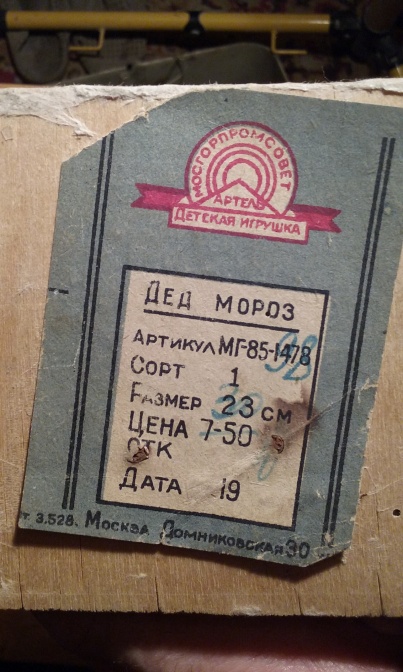 МОСГОРПРОМСОВЕТ
АРТЕЛЬ
ДЕТСКАЯ ИГРУШКА
ДЕД МОРОЗ
АРТИКУЛ МГ-85-1478
СОРТ 1
РАЗМЕР 23 СМ
ЦЕНА 7-50
ОТК
ДАТА 19
т 3.528. МОСКВА ДОМНИКОВСКАЯ 30